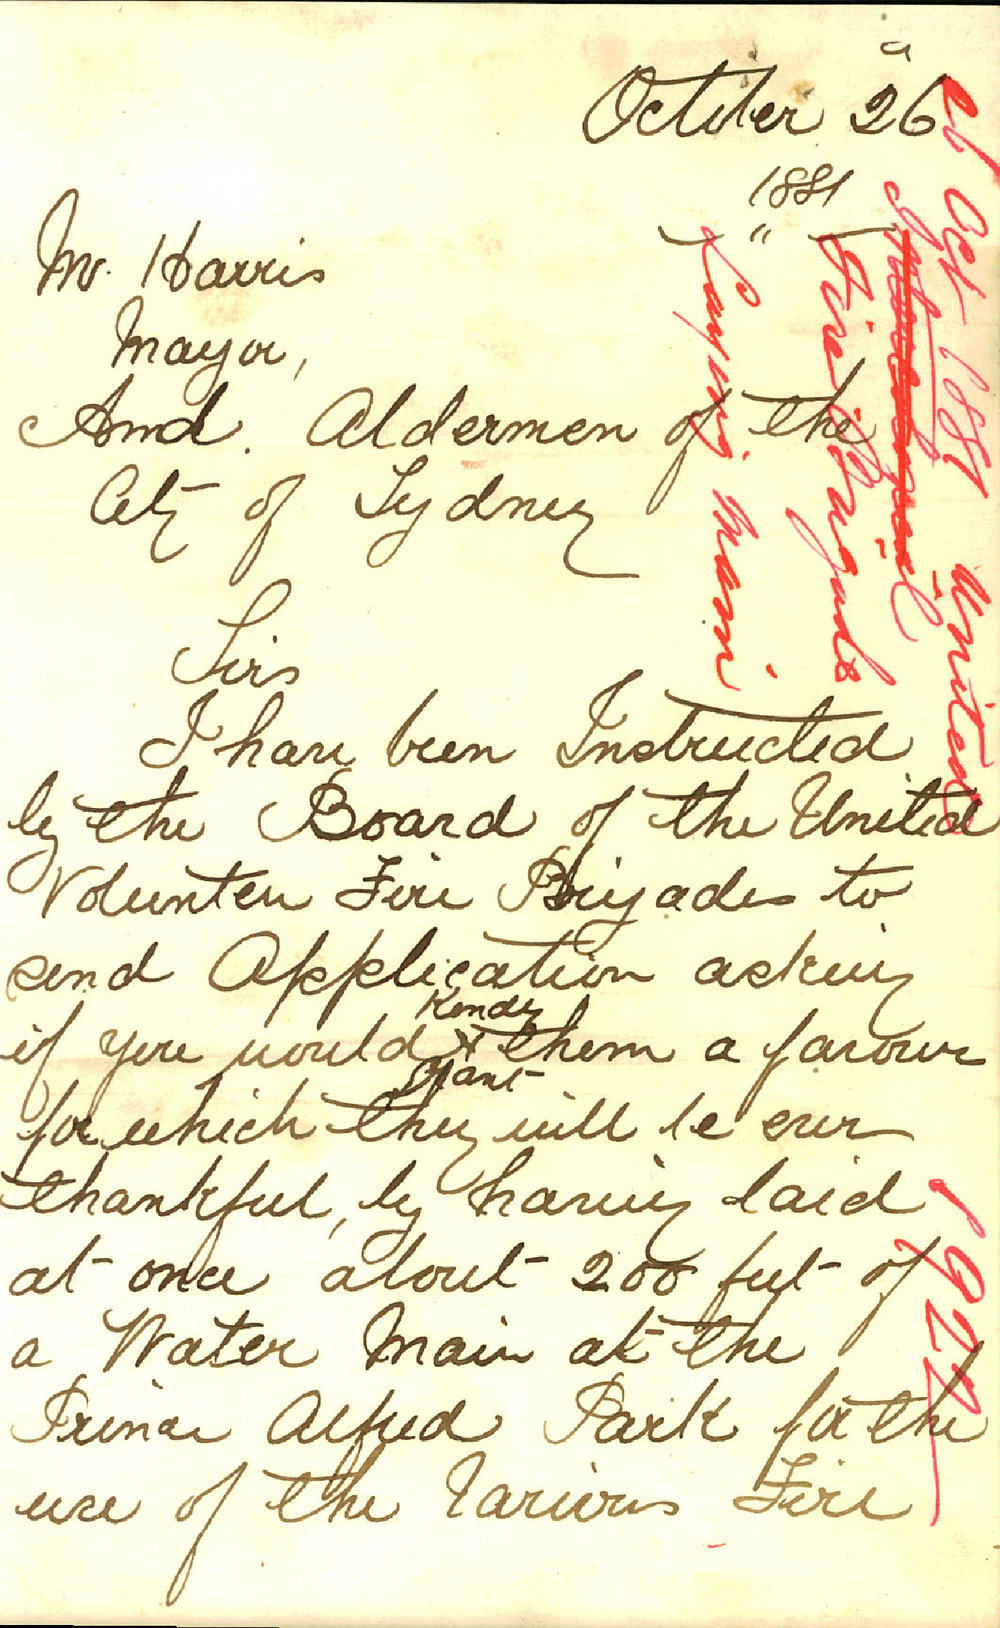 October 26
1881
Mr. Harris
Mayor,
And. Aldermen of the
City of Sydney
Sirs
I have been Instructed
by the Board of the United
Volunteer Fire Brigades to
send Application asking
Kindly
if you would & them a favour
Grant
for which they will be ever
thankful, by having laid
at once about 200 feet of
a Water Main at the
Prince Alfred Park for the
use of the Various Fire
26 Oct 1881 United
Fire Brigade
Laying Main
1922